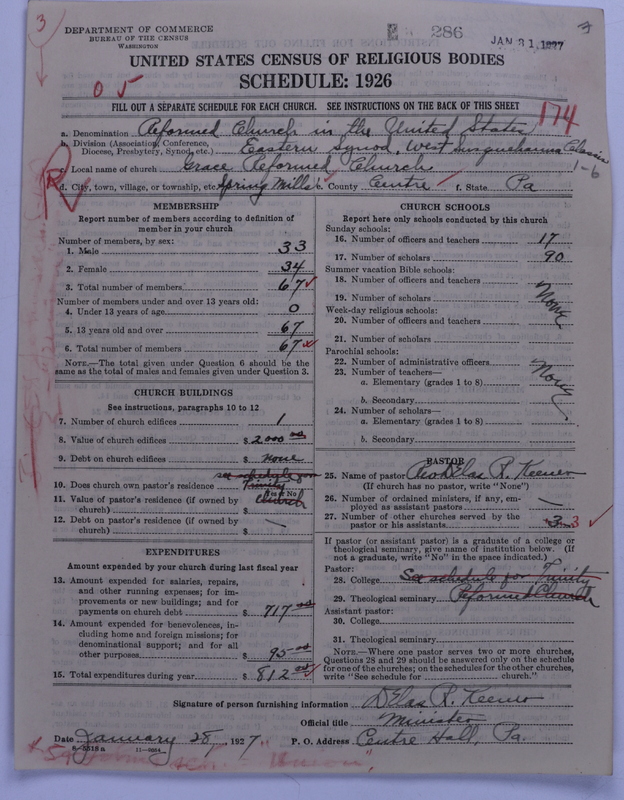 3
DEPARTMENT OF COMMERCE
BUREAU OF THE CENSUS
WASHINGTON
286
JAN 31 1927
UNITED STATES CENSUS OF RELIGIOUS BODIES
SCHEDULE: 1926
0 5
FILL OUT A SEPARATE SCHEDULE FOR EACH CHURCH. SEE INSTRUCTIONS ON THE BACK OF THIS SHEET
174
a. Denomination Reformed Church in the United States
b. Division (Association, Conference, Diocese, Presbytery, Synod, etc.) Eastern Synod, West Susquehanna Classis
1-6
c. Local name of church Grace Reformed Church
d. City, town, village, or township, etc. Spring Mills e. County Centre f. State Pa
MEMBERSHIP
Report number of members according to definition of member in your church
Number of members, by sex:
1. Male 33
2. Female 34
3. Total number of members 67
Number of members under and over 13 years old:
4. Under 13 years of age 0
5. 13 years old and over 67
6. Total number of members 67
NOTE.—The total given under Question 6 should be the same as the total of males and females given under Question 3.
CHURCH BUILDINGS
See instructions, paragraphs 10 to 12
7. Number of church edifices 1
8. Value of church edifices $2000 00
9. Debt on church edifices $ none
see schedule for
10. Does church own pastor's residence Trinity
(Yes or No)
11. Value of pastor's residence (if owned by church) $ Church
12. Debt on pastor's residence (if owned by church) $ —
EXPENDITURES
Amount expended by your church during last fiscal year
13. Amount expended for salaries, repairs, and other running expenses; for improvements or new buildings; and for payments on church debt $ 717 00
14. Amount expended for benevolences, including home and foreign missions; for denominational support; and for all other purposes $ 95 00
15. Total expenditures during year $ 812 00
CHURCH SCHOOLS
Report here only schools conducted by this church
Sunday schools:
16. Number of officers and teachers 17
17. Number of scholars 90
Summer vacation Bible schools:
18. Number of officers and teachers
19. Number of scholars
None
Week-day religious schools:
20. Number of officers and teachers
21. Number of scholars
Parochial schools:
22. Number of administrative officers
23. Number of teachers—
None
a. Elementary (grades 1 to 8)
b. Secondary
24. Number of scholars—
a. Elementary (grades 1 to 8)
b. Secondary
PASTOR
25. Name of pastor Rev. Delas R. Keener
(If church has no pastor, write "None")
26. Number of ordained ministers, if any, employed as assistant pastors —
27. Number of other churches served by the pastor or his assistants 3 3
If pastor (or assistant pastor) is a graduate of a college or theological seminary, give name of institution below. (If not a graduate, write "No" in the space indicated.)
Pastor:
28. College See schedule for Trinity
29. Theological seminary Reformed Church
Assistant pastor:
30. College
31. Theological seminary
NOTE.—Where one pastor serves two or more churches, Questions 28 and 29 should be answered only on the schedule for one of the churches; on the schedules for the other churches, write "See schedule for church."
Signature of person furnishing information Delas R. Keener
Official title Minister
Date January 28, 1927 P. O. Address Centre Hall, Pa.
11—9604